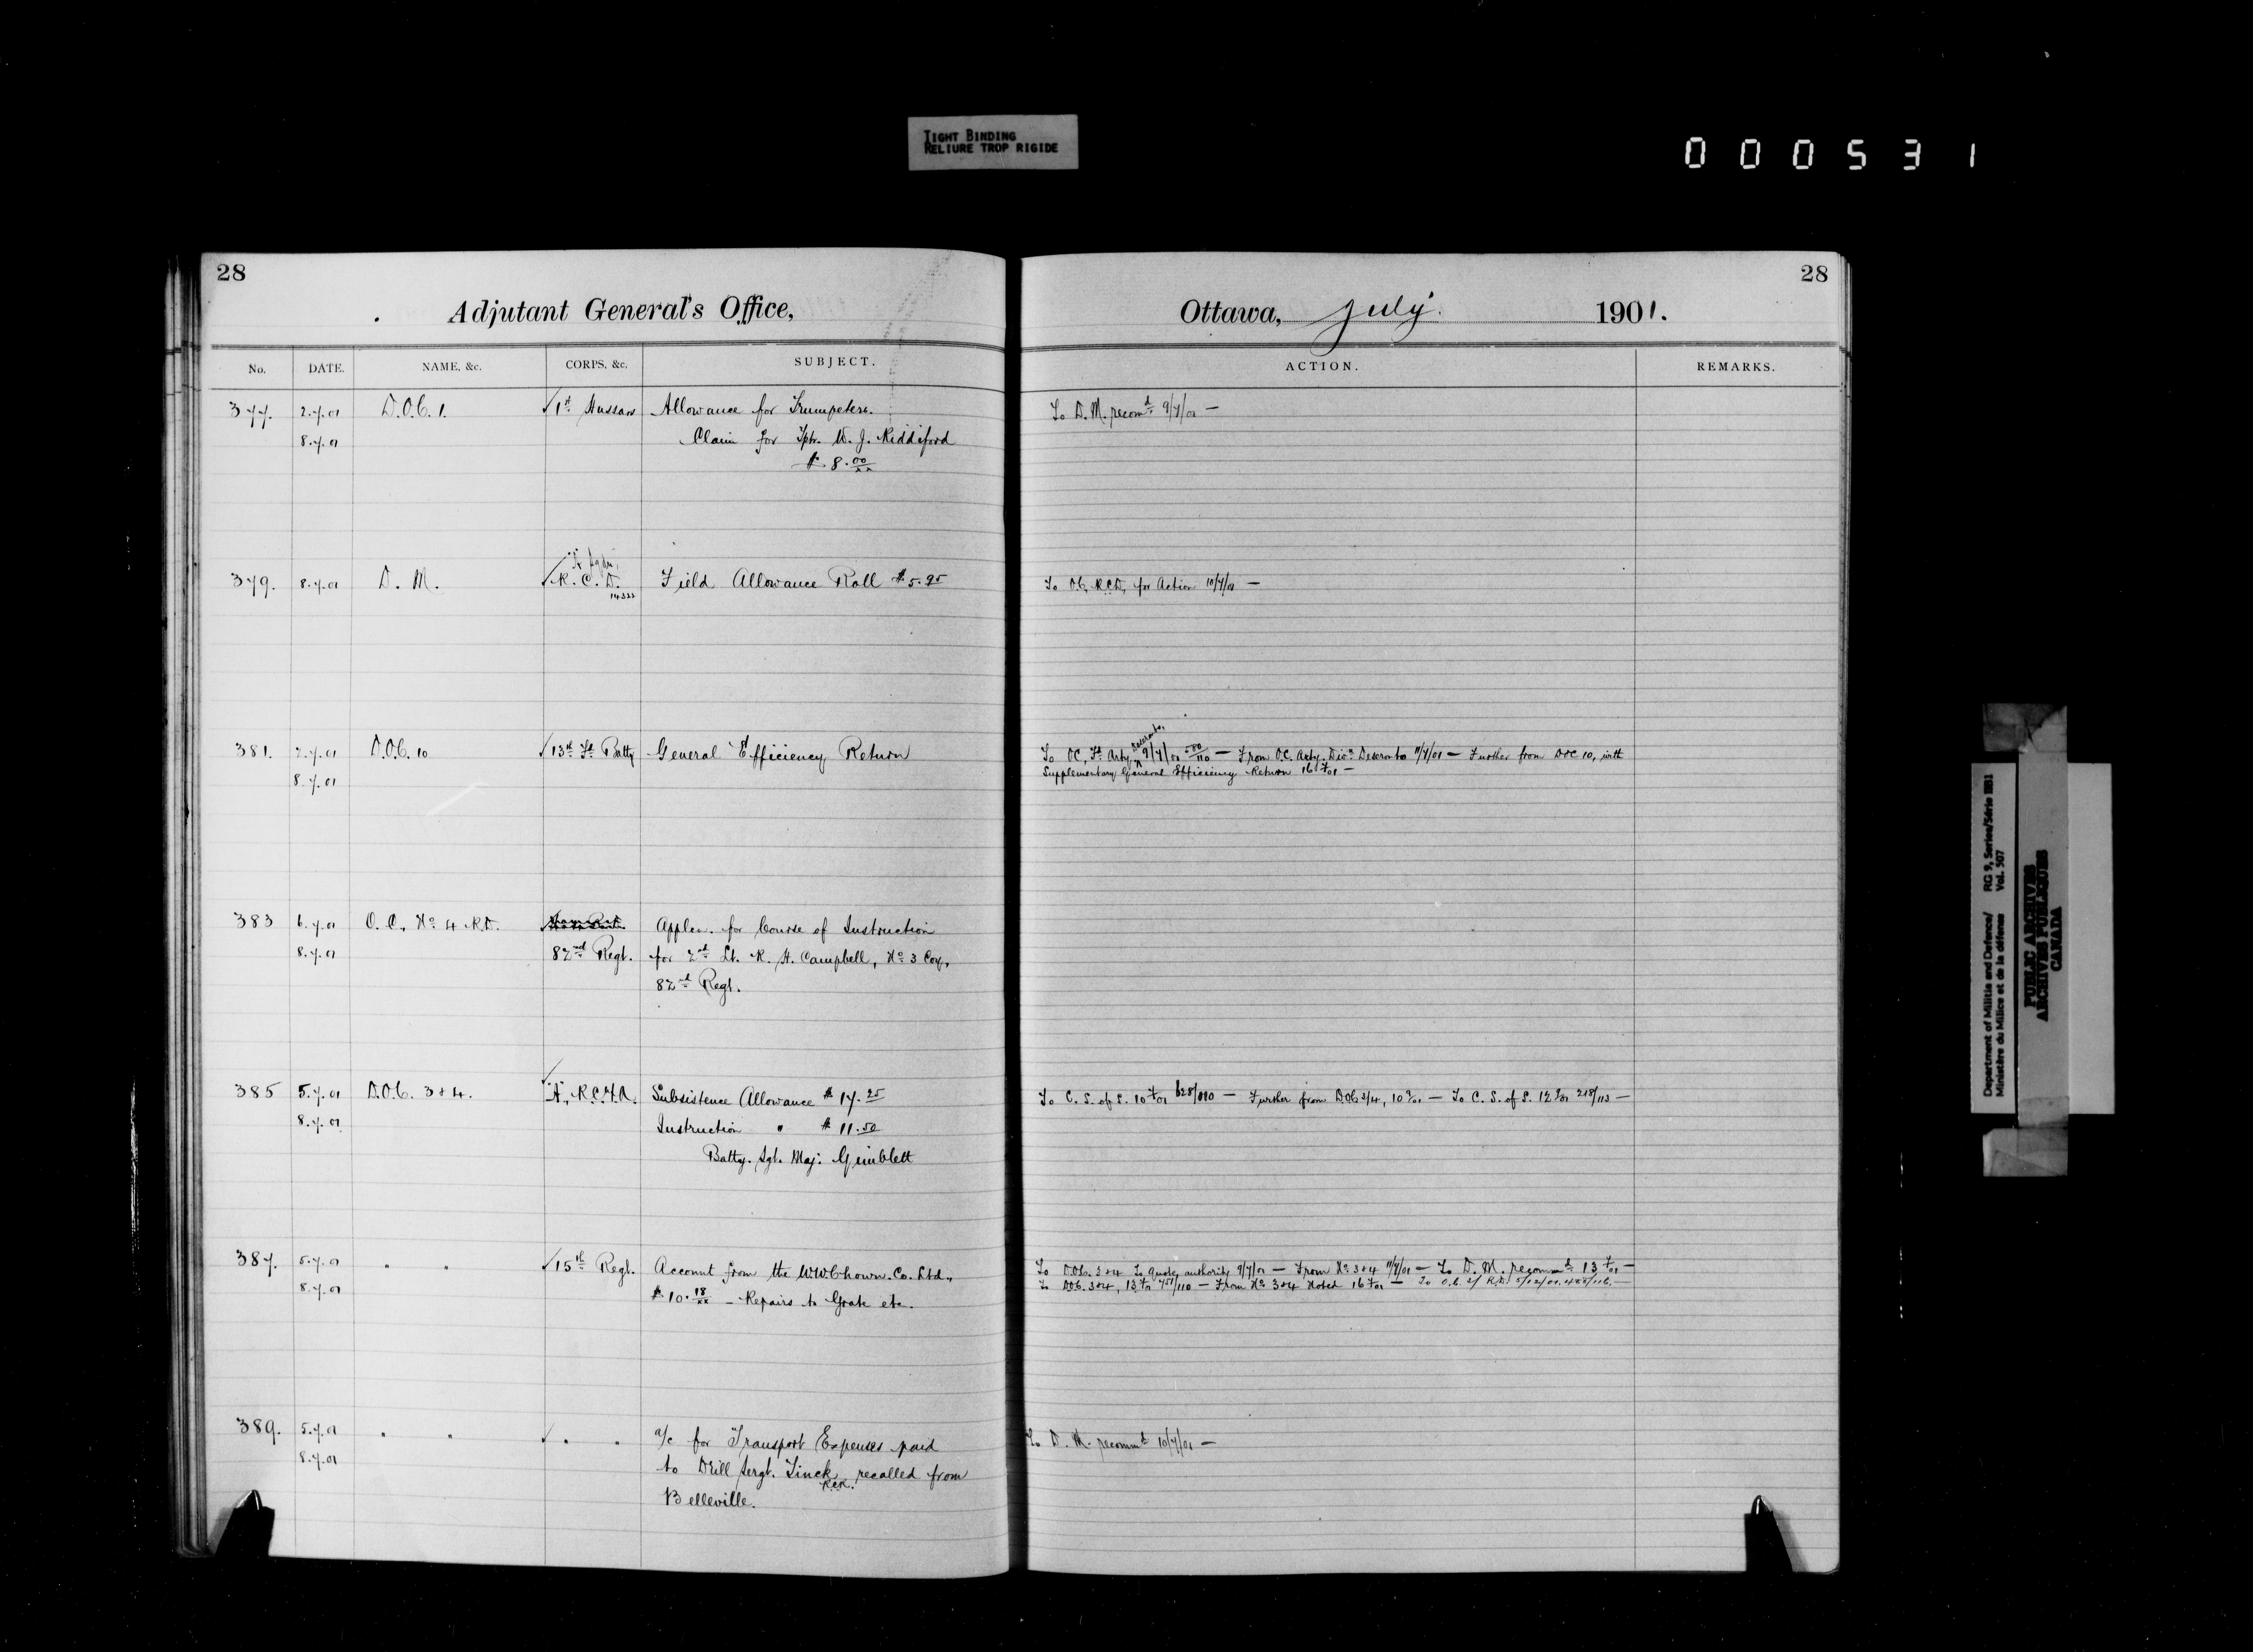 TIGHT BINDING
RELIURE TROP RIGIDE
000531
28
Adjutant General's Office,
No. DATE. NAME, &c. CORPS, &c. SUBJECT.
377. 2.7.01 D.O.C. 1. √1st Hussars Allowance for Trumpeters.
8.7.01 Claim for Tptr. W. J. Riddiford
$ 8.00/xx
"A" Sqdn.
379. 8.7.01 D. M. √R. C. D. Field Allowance Roll $5.25
14322
381. 2.7.01 D.O.C. 10 √13th Fd. Batty General Efficiency Return
8.7.01
383 6.7.01 O. C., No. 4 R.D. Applcn. for Course of Instruction
8.7.01 82nd Regt. for 2nd Lt. R. H. Campbell, No. 3 Coy,
82nd Regt.
385 5.7.01 D.O.C. 3 & 4. √"A", R.C.F.A. Subsistence Allowance $ 17.25
8.7.01 Instruction " $ 11.50
Batty. Sgt. Maj: Gimblett
387. 5.7.01 " " √15th Regt. Account from the W.W. Chown. Co. Ltd.,
8.7.01 $ 10.18/xx - Repairs to Grate etc.
389. 5.7.01 " " √ " " a/c for Transport Expenses paid
8.7.01 to Drill Sergt. Tinck, recalled from
R.C.R.
Belleville.
28
Ottawa, July. 1901.
ACTION. REMARKS.
To D. M. recomd. 9/7/01 —
To O.C. R.C.D. for Action 10/7/01 —
Deseronto,
To OC, Fd. Arty, ^ 9/7/01 500/110 — From O.C. Arty. Divn. Deseronto 11/7/01 — Further from DOC 10, with
Supplementary General Efficiency Return 16 7/01 —
To C. S. of S. 10 7/01 628/110 — Further from D.O.C. 3/4, 10 7/01 — To C. S. of S. 12 7/01 218/113 —
To D.O.C. 3 & 4 to quote authority 9/7/01 — From No. 3 & 4 11/7/01 — To D. M. recommd. 13 7/01 —
To D.O.C. 3 & 4, 13 7/01 751/110 — From No. 3 & 4 Noted 16 7/01 —
To D. M. recommd 10/7/01 —
Department of Militia and Defence/ RG 9, Series/Série IIB1
Ministère du Milice et de la défense Vol. 507
PUBLIC ARCHIVES
ARCHIVES PUBLIQUES
CANADA